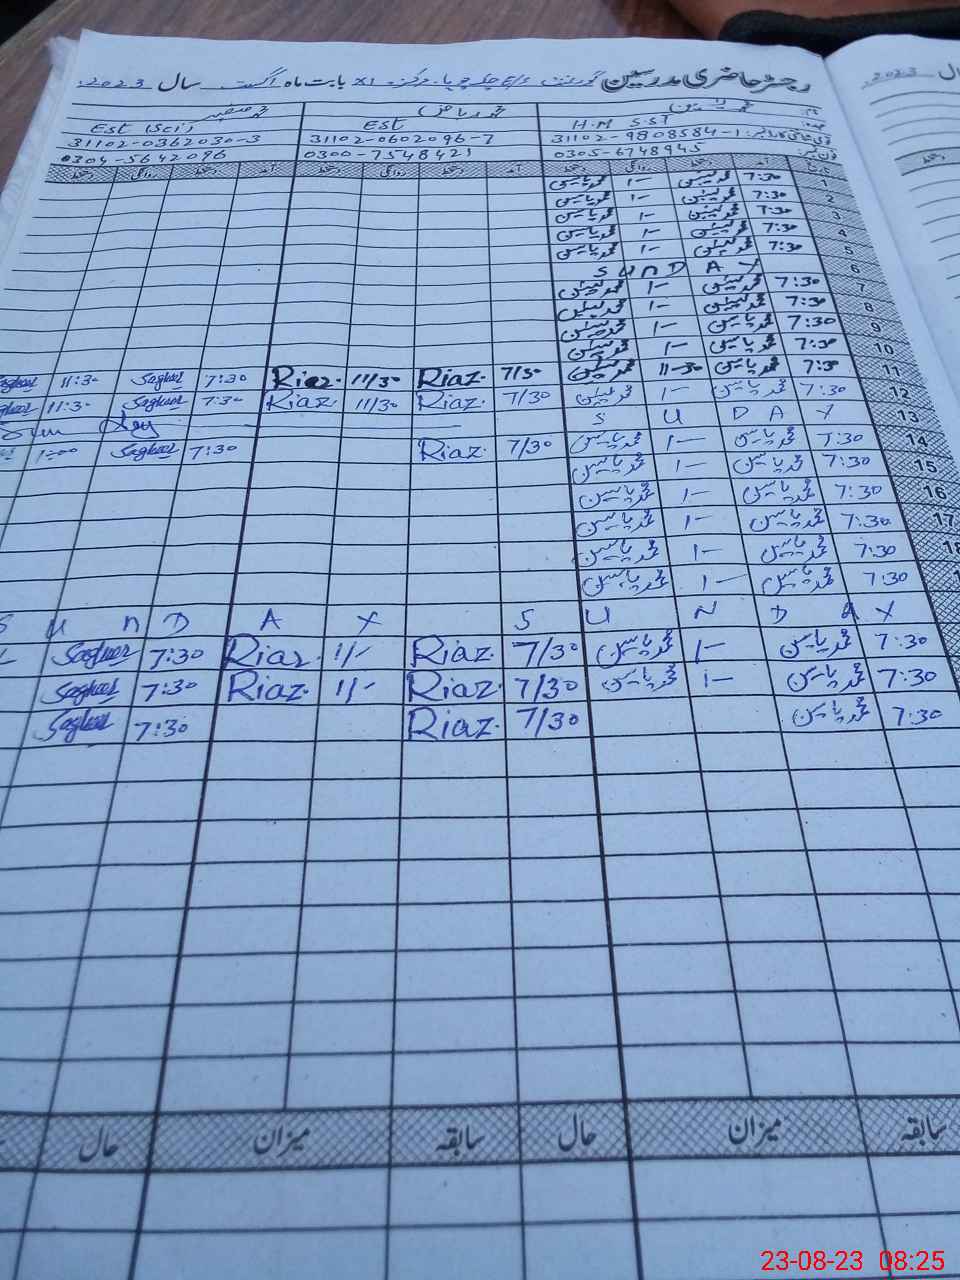 رجسٹر حاضری مدرسین گورنمنٹ بابت ماہ اگست سال 2023
محمد یاسین محمد ریاض محمد صغیر
H.M S.ST EST EST (Sci)
31102-9808584-1 31102-0602096-7 31102-0362030-3
0305-6748945 0300-7548421 0304-5642096
آمد دستخط روانگی دستخط آمد دستخط روانگی دستخط آمد دستخط روانگی دستخط
1 7:30 محمد یاسین 1- محمد یاسین
2 7:30 محمد یاسین 1- محمد یاسین
3 7:30 محمد یاسین 1- محمد یاسین
4 7:30 محمد یاسین 1- محمد یاسین
5 7:30 محمد یاسین 1- محمد یاسین
6 S U n D A Y
7 7:30 محمد یاسین 1- محمد یاسین
8 7:30 محمد یاسین 1- محمد یاسین
9 7:30 محمد یاسین 1- محمد یاسین
10 7:30 محمد یاسین 1- محمد یاسین
11 7:30 محمد یاسین 11-30 محمد یاسین 7/30 Riaz. 11/30 Riaz. 7:30 Sagheer 11:30 Sagheer
12 7:30 محمد یاسین 1- محمد یاسین 7/30 Riaz. 11/30 Riaz. 7:30 Sagheer 11:30 Sagheer
13 S U D A Y Sun Day
14 7:30 محمد یاسین 1- محمد یاسین 7/30 Riaz. 7:30 Sagheer 1:00
15 7:30 محمد یاسین 1- محمد یاسین
16 7:30 محمد یاسین 1- محمد یاسین
17 7:30 محمد یاسین 1- محمد یاسین
18 7:30 محمد یاسین 1- محمد یاسین
7:30 محمد یاسین 1- محمد یاسین
S U n D A Y S U N D A Y
7:30 محمد یاسین 1- محمد یاسین 7/30 Riaz. 1/- Riaz. 7:30 Sagheer
7:30 محمد یاسین 1- محمد یاسین 7/30 Riaz. 1/- Riaz. 7:30 Sagheer
7:30 محمد یاسین 7/30 Riaz. 7:30 Sagheer
سابقہ میزان حال سابقہ میزان حال
2023
23-08-23 08:25